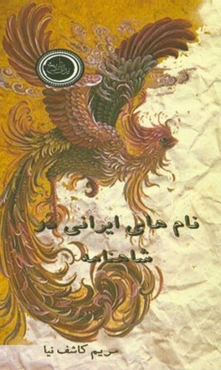 نام های ایرانی در
شاهنامه
مریم کاشف نیا